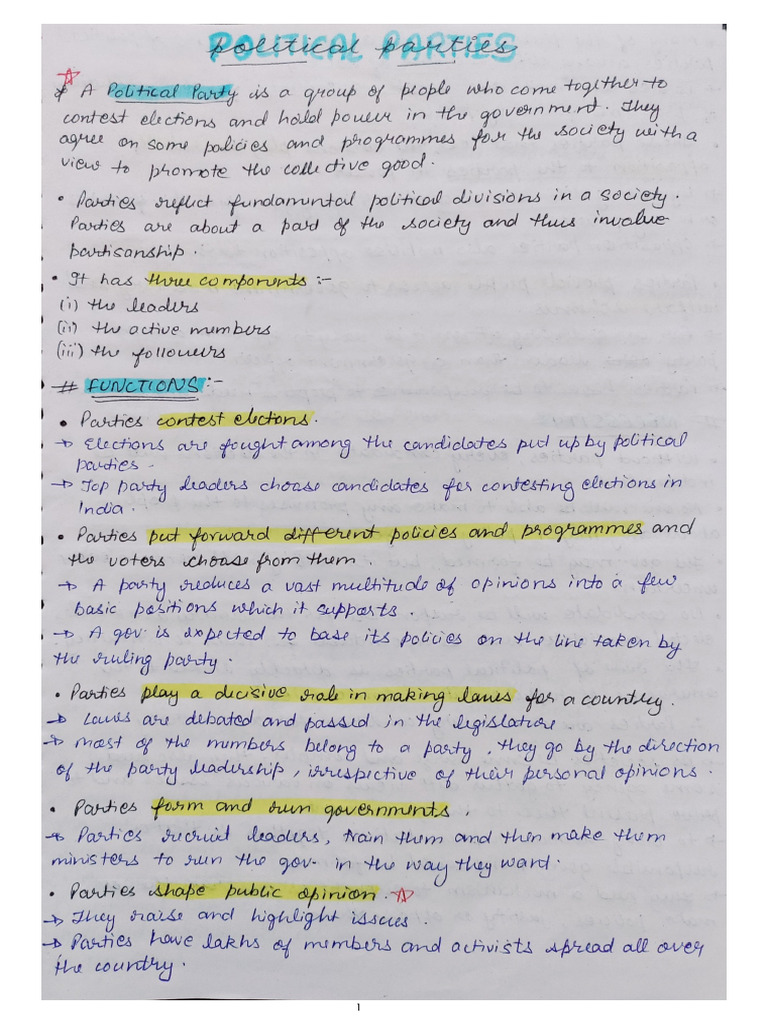 POLITICAL PARTIES
political parties
* A Political Party is a group of people who come together to
contest elections and hold power in the government. They
agree on some policies and programmes for the society with a
view to promote the collective good.
• Parties reflect fundamental political divisions in a society.
Parties are about a part of the society and thus involve
partisanship.
• It has three components :-
(i) the leaders
(ii) the active members
(iii) the followers
# FUNCTIONS:-
• Parties contest elections.
→ Elections are fought among the candidates put up by political
parties.
→ Top party leaders choose candidates for contesting elections in
India.
• Parties put forward different policies and programmes and
the voters choose from them.
→ A party reduces a vast multitude of opinions into a few
basic positions which it supports.
→ A gov. is expected to base its policies on the line taken by
the ruling party.
• Parties play a decisive role in making laws for a country.
→ Laws are debated and passed in the legislature
→ most of the members belong to a party, they go by the direction
of the party leadership, irrispective of their personal opinions.
• Parties form and run governments.
→ Parties recruit leaders, train them and then make them
ministers to run the gov. in the way they want.
• Parties shape public opinion.
→ They raise and highlight issues.
→ Parties have lakhs of members and activists spread all over
the country.
1